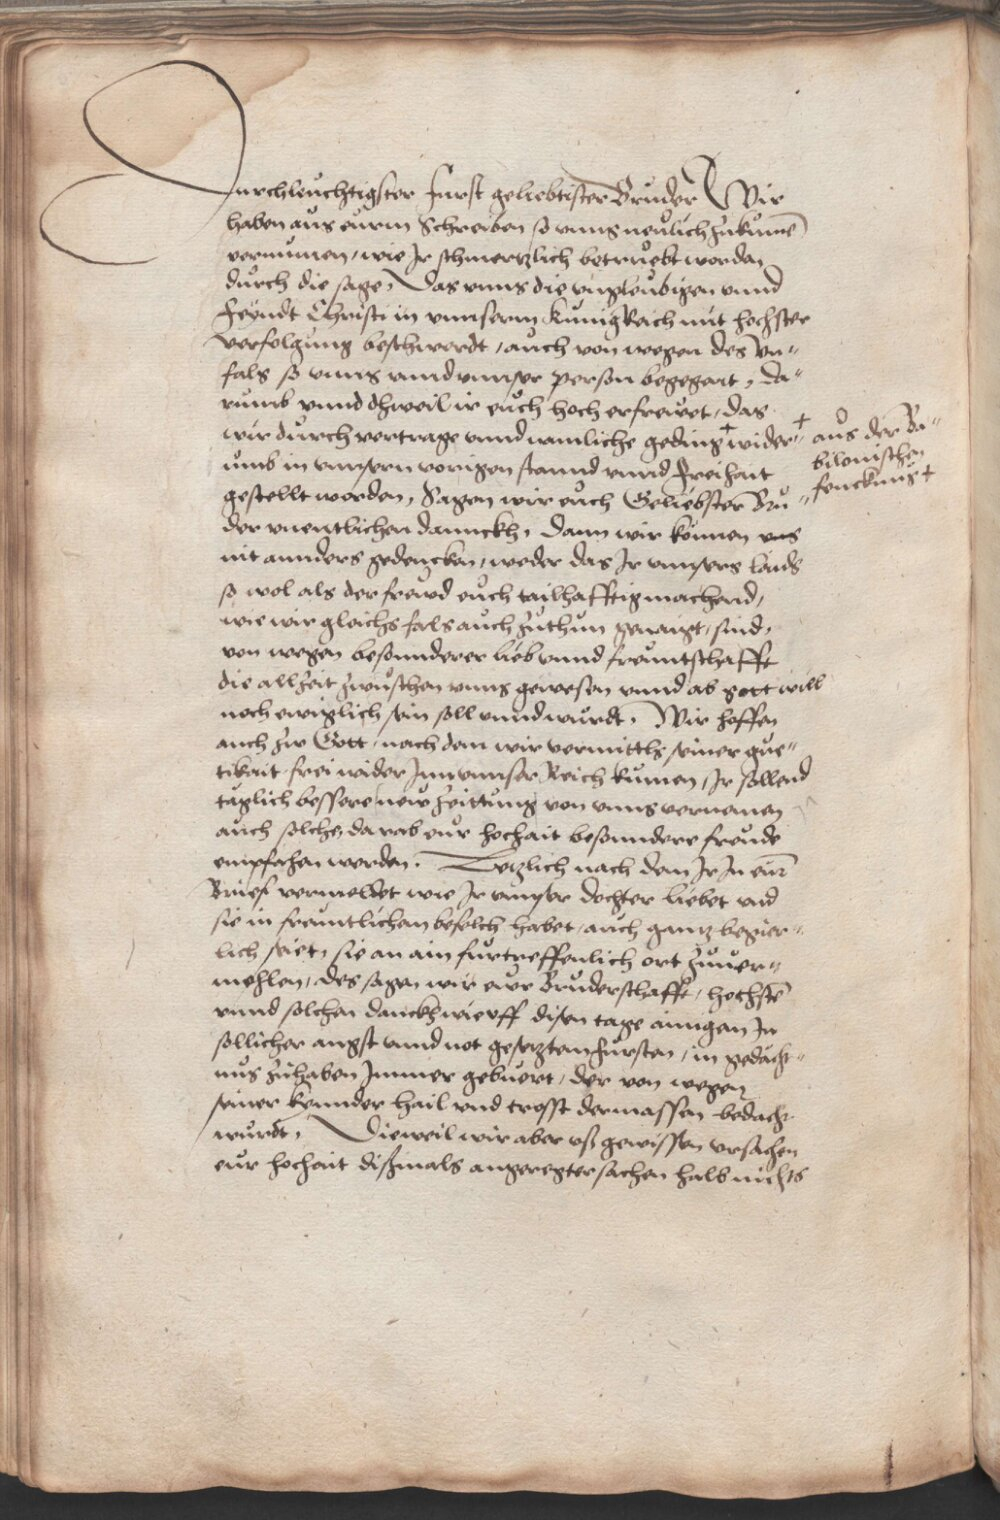 Durchleuchtigster Furst geliebtister Bruder Wir
haben aus eurm Schreiben so vnns neulich zukumē
vernumen, wie Ir schmertzlich betruebt worden
durch die sage, Das vnns die vngleubigen vnnd
feyndt Christi in vnnserm Kunig Reich mit hochster
verfolgung beschwerdt, auch von wegen des Vn„
fals so vnns vnnd vnnser person begegnt, da„
rumb vnnd dhweil ir euch hoch erfrewet, das
wir durch vertrage vnnd namliche geding + wider„ +
umb in vnnsern vorigen stannd vnnd Freihait
gestellt worden, Sagen wir euch Geliebster Bru„
der vnentlichen dannckh, Dann wir konnen vns
nit annders gedencken, weder das Ir vnnsers laids
so wol als der frewd euch tailhafftig machend,
wie wir gleichs fals auch zuthun genaigt, sind,
von wegen besonnderer lieb vnnd freuntschafft
die allzeit zwuschen vnns gewesen vnnd ab gott will
noch ewiglich sein soll vnnd wurdt, Wir hoffen
auch zu Gott, nach dem wir vermittls seiner gue„
tikait frei wider Inn vnnser Reich kumen, Ir sollend
taglich bessere new zeittung von vnns vernemen
auch solche, darab eur hochait besonndere freude
empfahen werden. Letzlich nach dem Ir In eur̄
Brief vermeldet wie Ir vnnser dochter liebet vnd
sie in freuntlichem befelch habet, auch gantz begier„
lich seiet, sie an ain furtreffenlich ort zuuer„
mehlen, des sagen wir euer Bruderschafft, hochstē
vnnd solchen danckh wie vff disen tage ainigem In
sollicher angst vnnd not gesetztem Fursten, in gedacht„
nus zuhaben Immer gebuert, der von wegen
seiner kynnder hail vnd trosst dermassen bedacht
wurdt, Dieweil wir aber vß gewissen vrsachen
eur hochait dißmals angeregter sachen halb nichts
aus der Ba„
bilonischen
fenckhnus +